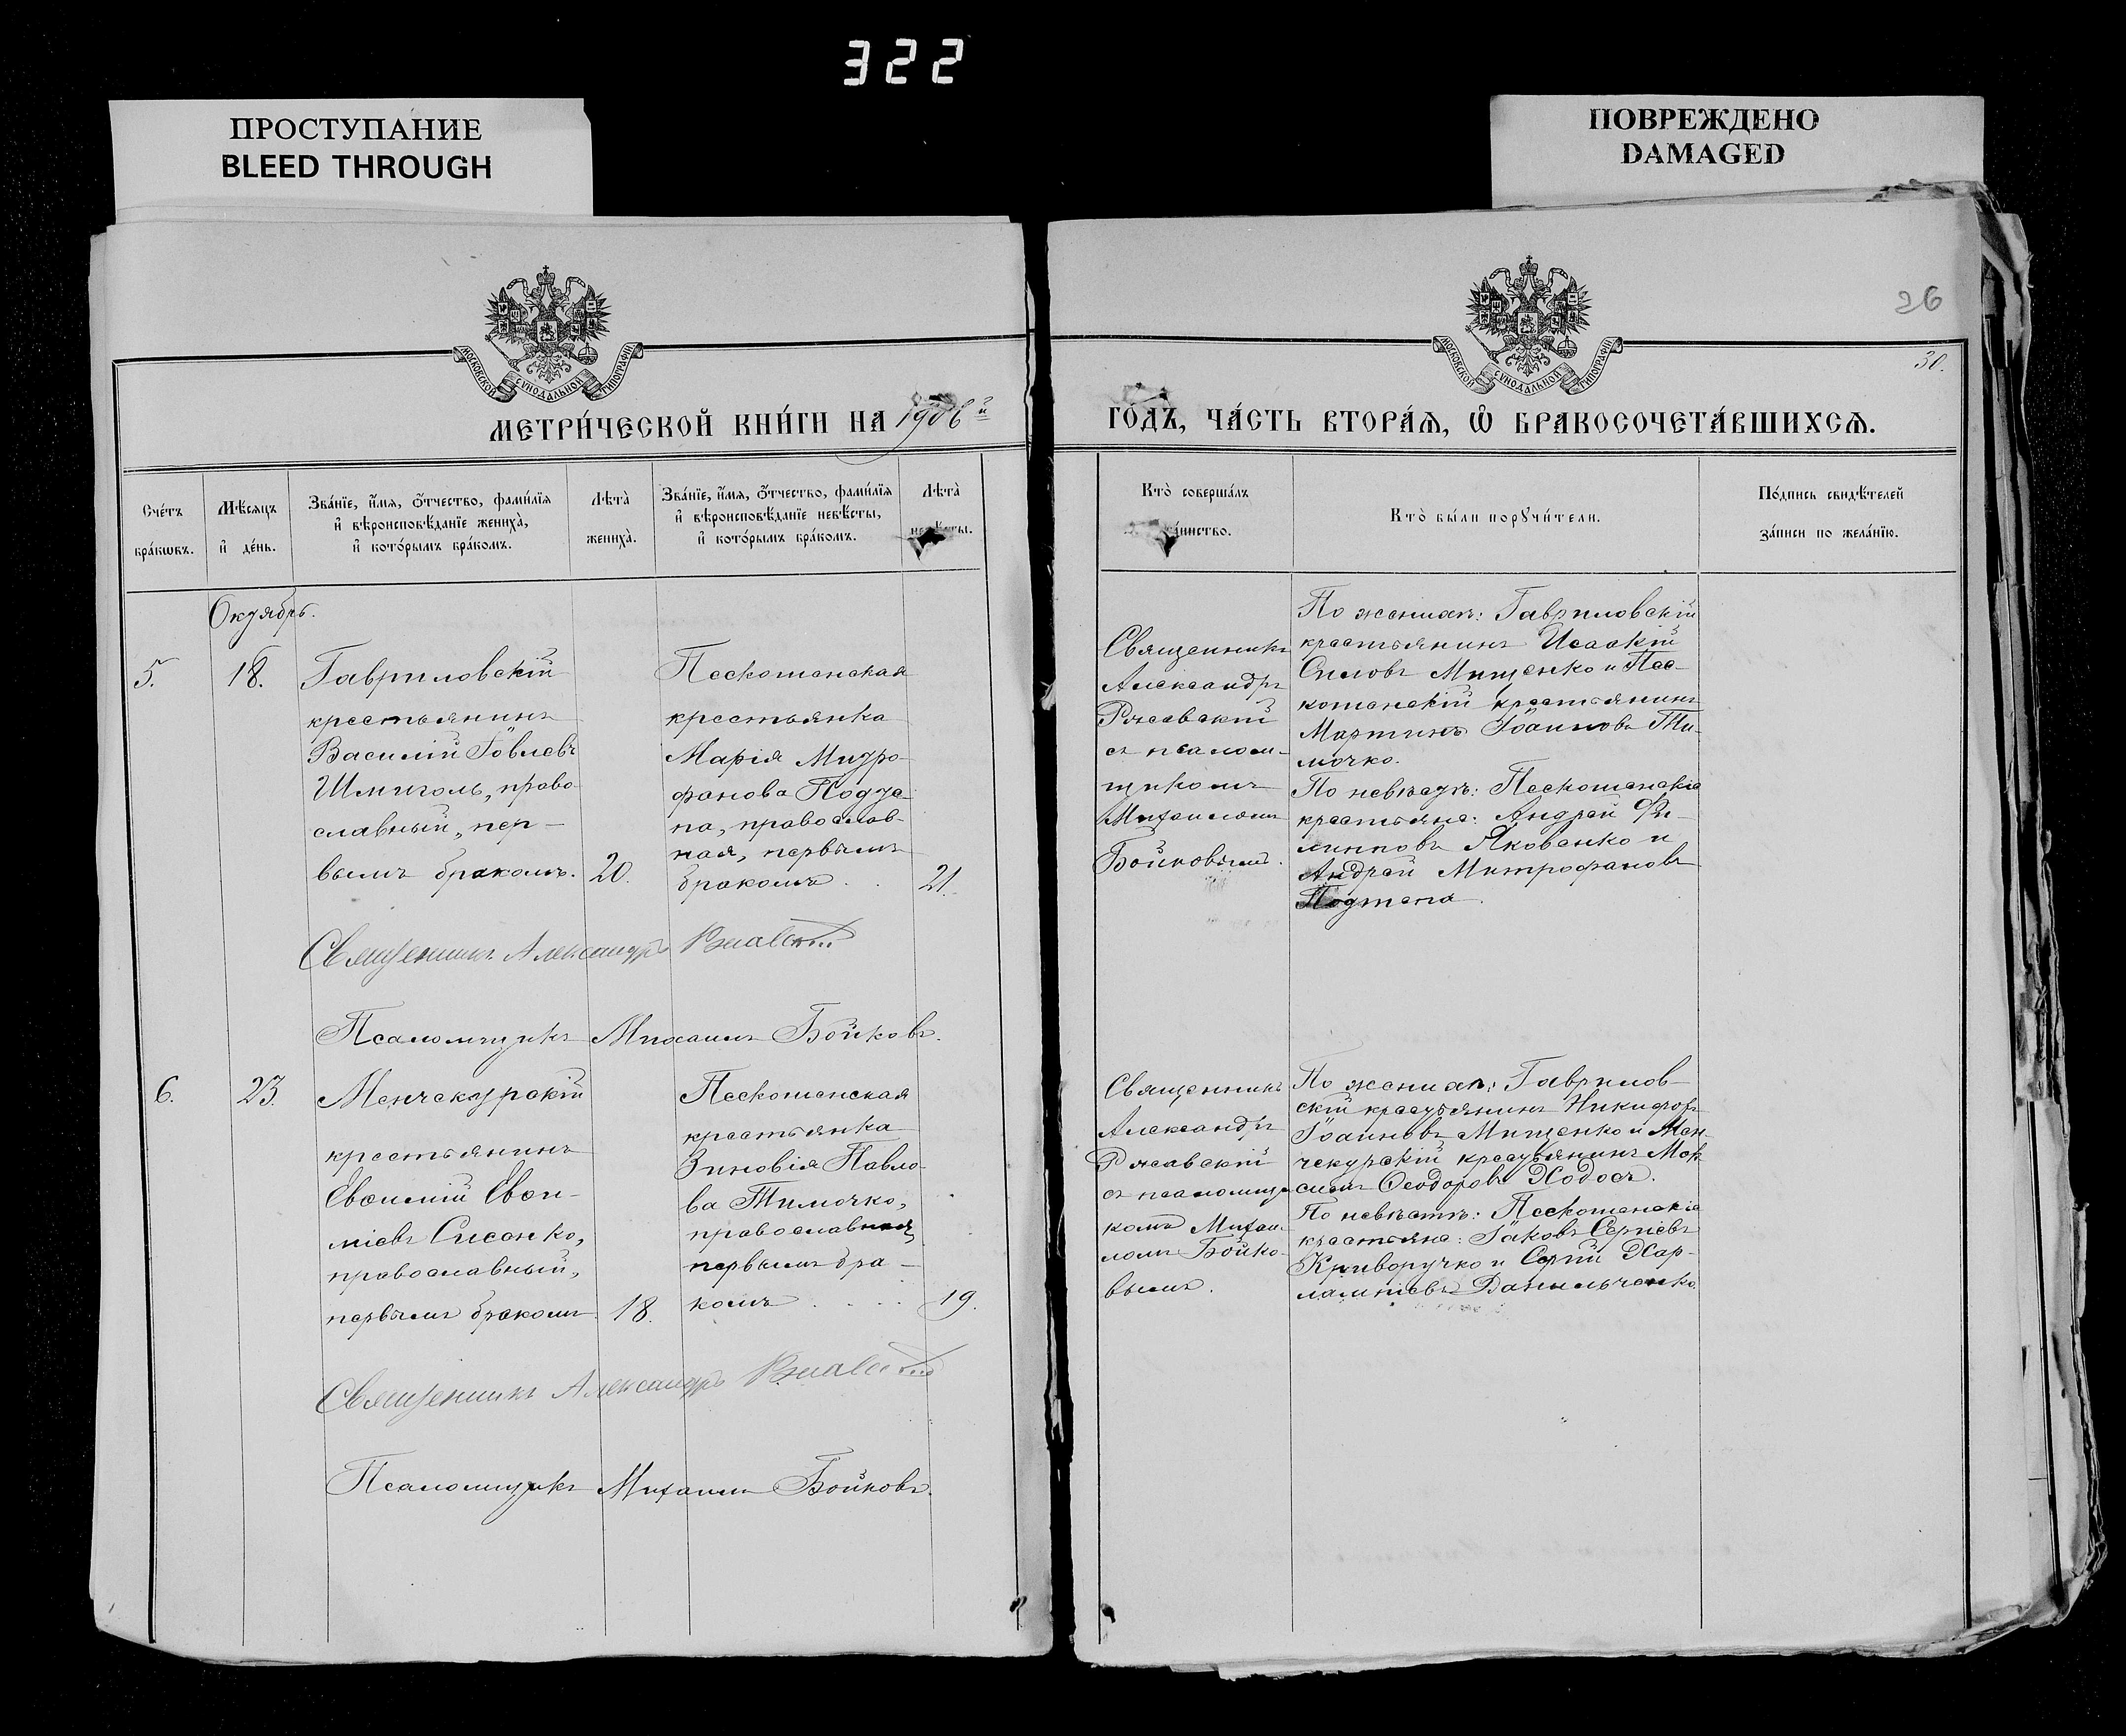 322
ПРОСТУПАНИЕ
BLEED THROUGH
ПОВРЕЖДЕНО
DAMAGED
26
30.
МОСКОВСКОЙ СѴНОДАЛЬНОЙ ТИПОГРАФІИ
МОСКОВСКОЙ СѴНОДАЛЬНОЙ ТИПОГРАФІИ
МЕТРИ́ЧЕСКОЙ КНИ́ГИ НА 1906й
ГО́ДЪ, ЧА́СТЬ ВТОРА́Ѧ, Ѽ БРАКОСОЧЕТА́ВШИХСѦ.
Сче́тъ
бра́кѡвъ.
Мѣ́сяцъ
и҆ де́нь.
Зва́нїе, и҆́мя, ѻ҆́тчество, фами́лїя
и҆ вѣроисповѣ́данїе жениха̀,
и҆ кото́рымъ бра́комъ.
Лѣта̀
жениха̀.
Зва́нїе, и҆́мя, ѻ҆́тчество, фами́лїя
и҆ вѣроисповѣ́данїе невѣ́сты,
и҆ кото́рымъ бра́комъ.
Лѣта̀
невѣ́сты.
Кто̀ соверша́лъ
та́инство.
Кто̀ бы́ли порꙋчи́тели.
По́дпись свидѣ́телей
за́писи по жела́нїю.
Октябрь.
5.
18.
Гавриловскій
крестьянинъ
Василій Іовлевъ
Шмиголь, право-
славный, пер-
вымъ бракомъ.
20.
Пескошенская
крестьянка
Марія Митро-
фанова Подте-
па, православ-
ная, первымъ
бракомъ . .
21.
Священникъ
Александръ
Ржавскій
съ псалом-
щикомъ
Михаиломъ
Бойковымъ.
По женихѣ: Гавриловскій
крестьянинъ Исаакій
Силовъ Мищенко и Пес-
кошенскій крестьянинъ
Мартинъ Іоанновъ Ти-
мочко.
По невѣстѣ: Пескошенскіе
крестьяне: Андрей Фи-
липповъ Яковенко и
Андрей Митрофановъ
Подтепа.
Священникъ Александръ Ржавскій
Псаломщикъ Михаилъ Бойковъ.
6.
23.
Менчекурскій
крестьянинъ
Евѳимій Евѳи-
міевъ Сисенко,
православный,
первымъ бракомъ
18.
Пескошенская
крестьянка
Зиновія Павло-
ва Тимочко,
православная,
первымъ бра-
комъ . . . .
19.
Священникъ
Александръ
Ржавскій
съ псаломщи-
комъ Михаи-
ломъ Бойко-
вымъ.
По женихѣ: Гаврилов-
скій крестьянинъ Никифоръ
Іоанновъ Мищенко и Мен-
чекурскій крестьянинъ Мак-
симъ Ѳеодоровъ Ходосъ.
По невѣстѣ: Пескошенскіе
крестьяне: Іаковъ Сергіевъ
Криворучко и Сергій Хар-
лампіевъ Данильченко
Священникъ Александръ Ржавскій
Псаломщикъ Михаилъ Бойковъ.